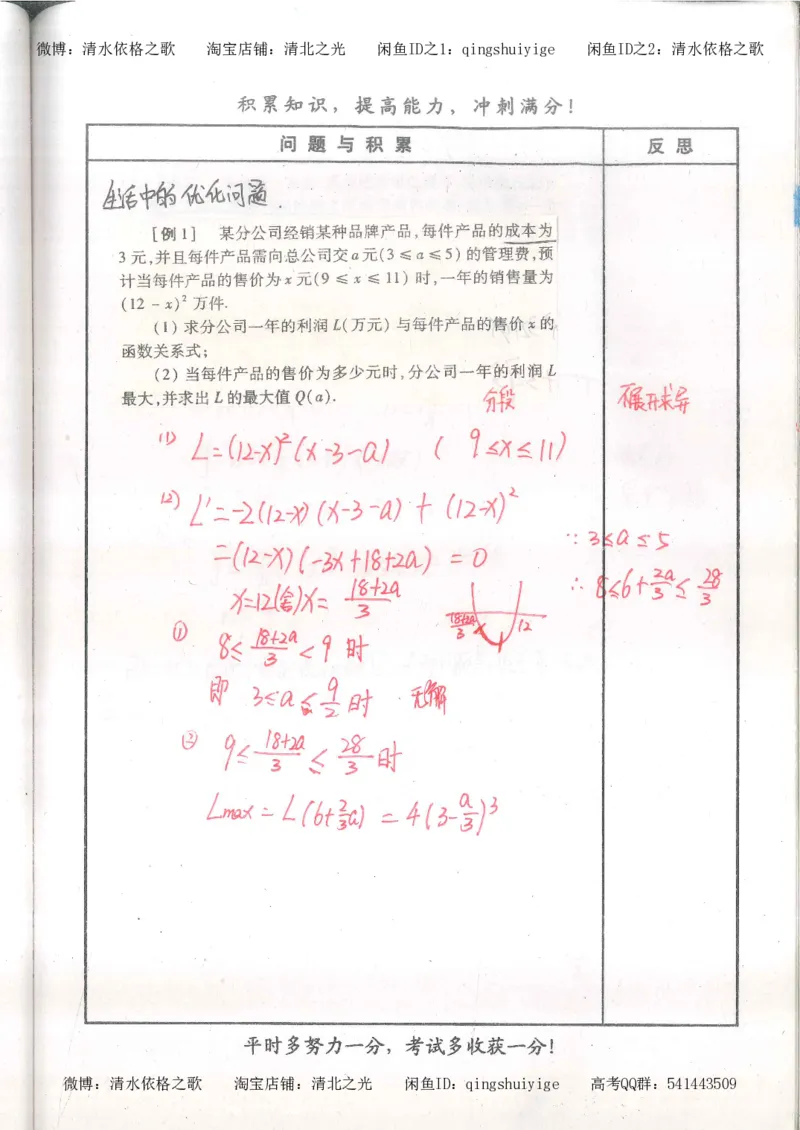 微博：清水依格之歌 淘宝店铺：清北之光 闲鱼ID之1：qingshuiyige 闲鱼ID之2：清水依格之歌
积累知识，提高能力，冲刺满分！
问题与积累 反思
生活中的优化问题
[例1] 某分公司经销某种品牌产品,每件产品的成本为
3元,并且每件产品需向总公司交a元(3≤a≤5)的管理费,预
计当每件产品的售价为x元(9≤x≤11)时,一年的销售量为
(12-x)² 万件.
(1)求分公司一年的利润L(万元)与每件产品的售价x的
函数关系式;
(2)当每件产品的售价为多少元时,分公司一年的利润L
最大,并求出L的最大值Q(a).
分段 不展开求导
(1) L=(12-x)²(x-3-a) (9≤x≤11)
(2) L'=-2(12-x)(x-3-a)+(12-x)²
∵3≤a≤5
=(12-x)(-3x+18+2a)=0
∴8≤6+2a/3≤28/3
x=12(舍)x=18+2a/3
18+2a/3 12
① 8≤18+2a/3<9时
即 3≤a≤9/2时 无解
② 9≤18+2a/3≤28/3时
Lmax=L(6+2/3a)=4(3-a/3)³
平时多努力一分，考试多收获一分！
微博：清水依格之歌 淘宝店铺：清北之光 闲鱼ID：qingshuiyige 高考QQ群：541443509